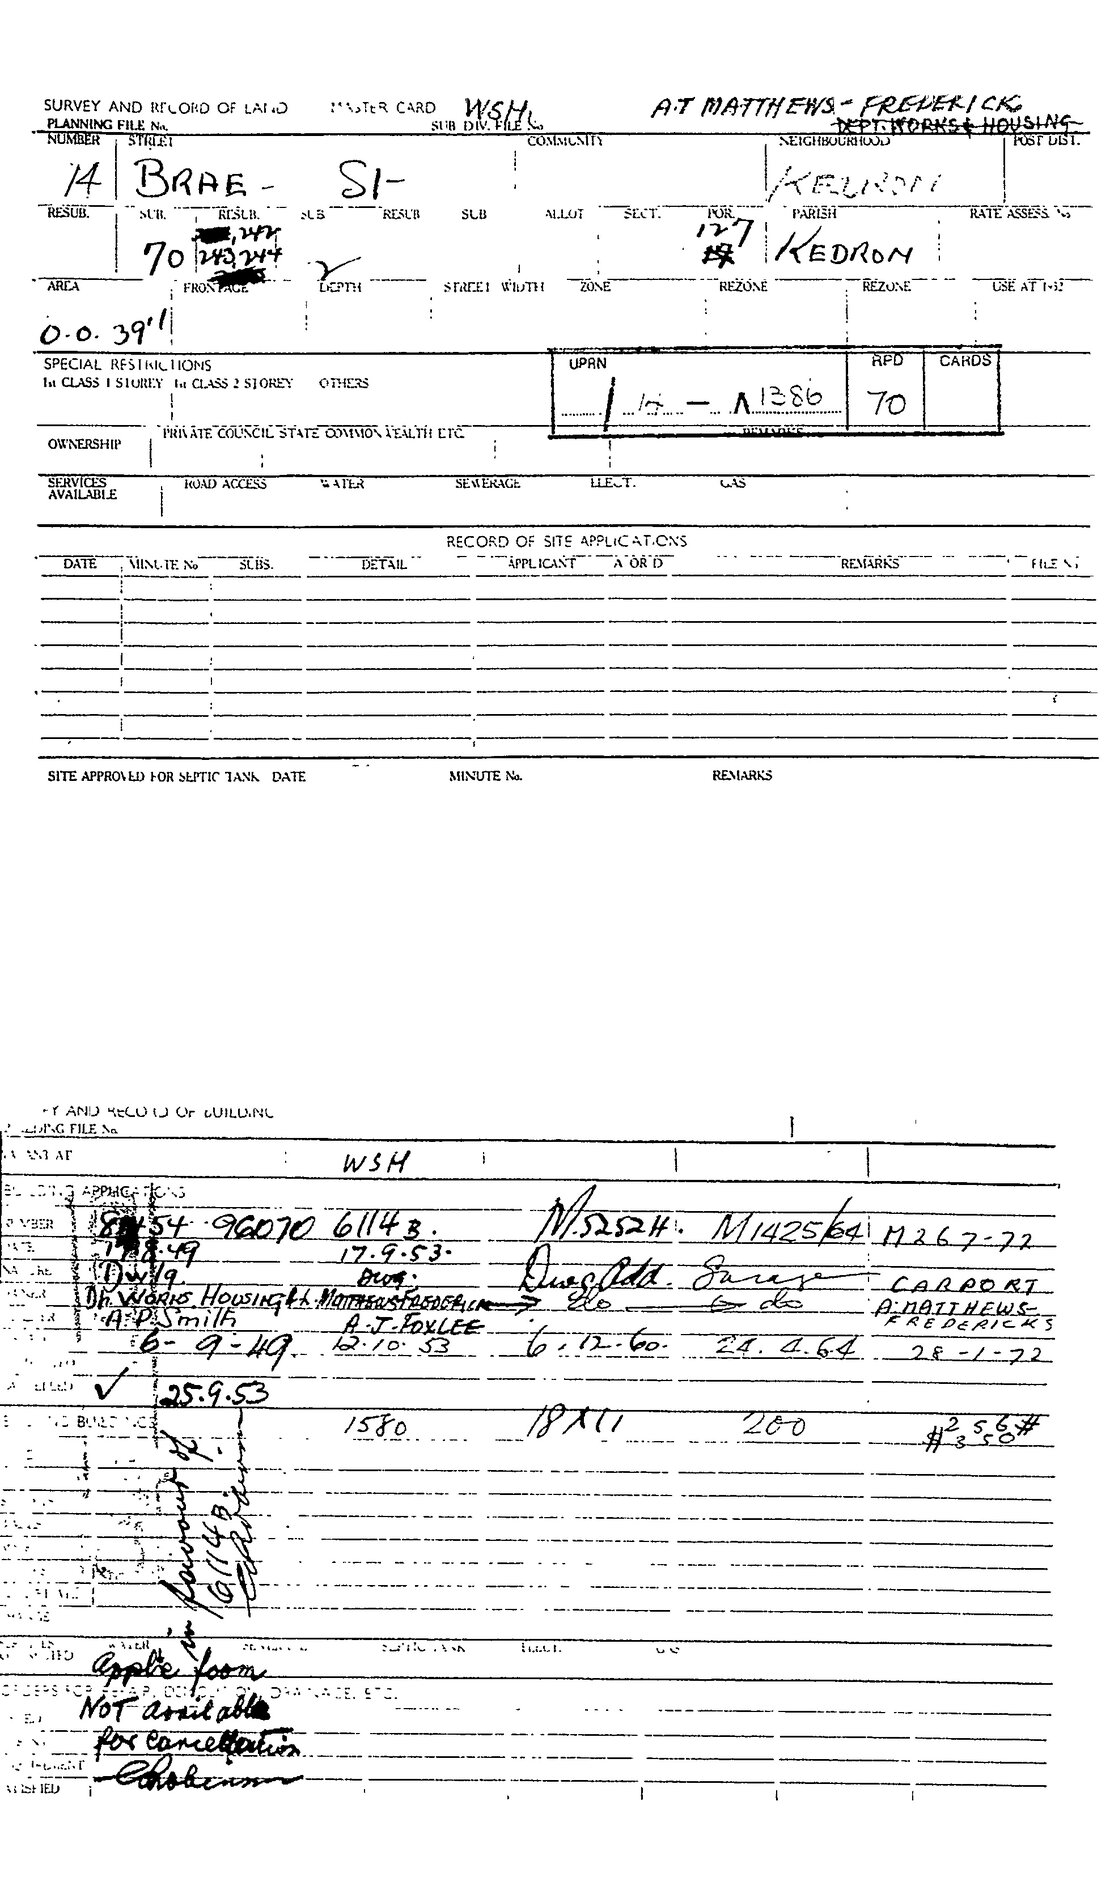 SURVEY AND RECORD OF LAND MASTER CARD WSH. A.T MATTHEWS - FREDERICK
PLANNING FILE No. SUB DIV. FILE No DEPT. WORKS & HOUSING
NUMBER STREET COMMUNITY NEIGHBOURHOOD POST DIST.
14 BRAE - ST- KEDRON
RESUB. SUB. RESUB. SUB RESUB SUB ALLOT SECT. POR. PARISH RATE ASSESS. No
70 242 243, 244 2 127 KEDRON
AREA FRONTAGE DEPTH STREET WIDTH ZONE REZONE REZONE USE AT
0.0.39"1
SPECIAL RESTRICTIONS UPRN RPD CARDS
1st CLASS 1 STOREY 1st CLASS 2 STOREY OTHERS
/ 14 - A 1386 70
PRIVATE COUNCIL STATE COMMONWEALTH ETC. REMARKS
OWNERSHIP
SERVICES AVAILABLE ROAD ACCESS WATER SEWERAGE ELECT. GAS
RECORD OF SITE APPLICATIONS
DATE MINUTE No SUBS. DETAIL APPLICANT A OR D REMARKS FILE No
SITE APPROVED FOR SEPTIC TANK DATE MINUTE No. REMARKS
EY AND RECORD OF BUILDING
LDING FILE No.
WSH
BUILDING APPLICATIONS
NUMBER 54 96070 6114B. M.5252H. M1425/64 M 267-72
8.49 17.9.53.
Dwlg. Dwg. Dwg Add. Garage CARPORT
Dp. WORKS HOUSING MATTHEWS FREDERICK do do A. MATTHEWS-FREDERICKS
A.P. Smith A.J. FOXLEE
6-9-49. 12.10.53 6.12.60. 24.4.64 28-1-72
✓ 25.9.53
BUILDINGS 1580 18X11 200 #256# #350
in favour of
6114B.
WATER SEPTIC TANK ELECT. GAS
Applic form
ORDERS FOR REPAIR, DEMOLITION, DRAINAGE, ETC.
NOT available
for cancellation